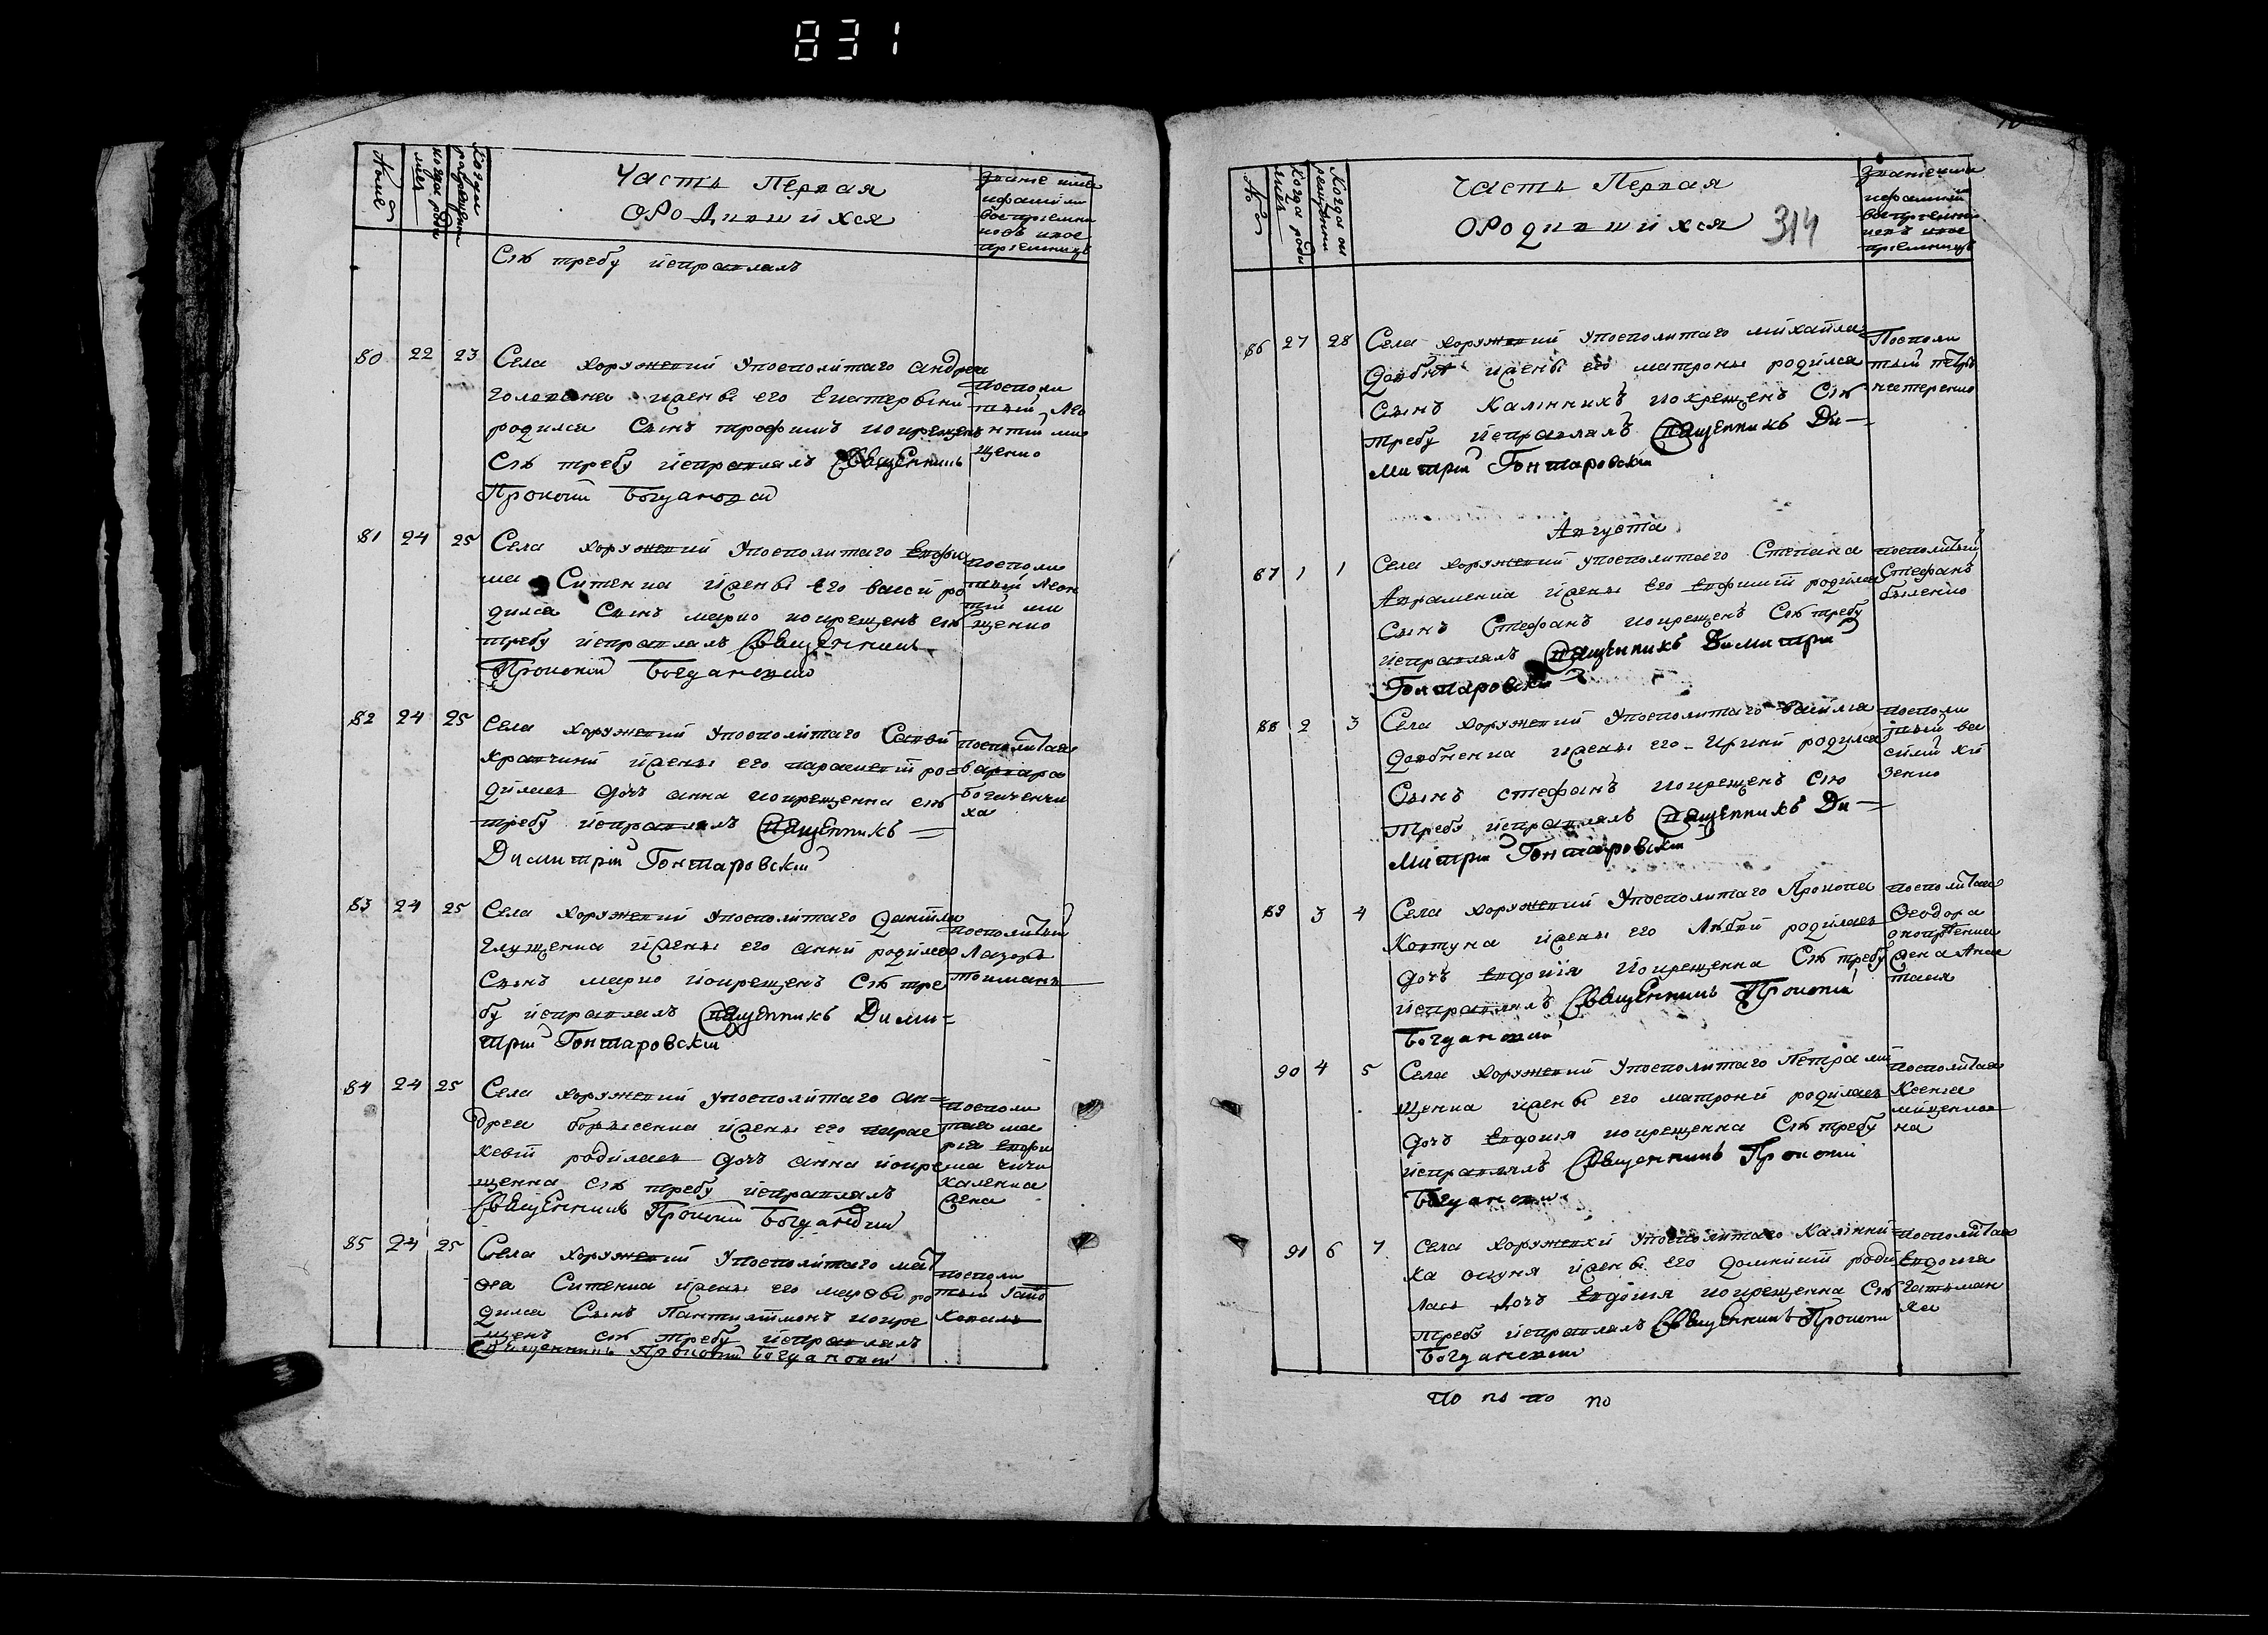 831
Часть Первая
ОРОДившихся
Сію требу исправлялъ
80 22 23 Села Хоружевки Упосполитаго андрея
голована ижены его Екатерыни
родился Сынъ трофимъ икрещенъ
Сію требу исправлялъ Священникъ
Прокопій Богдановскій
посполи
тый Лео
нтий ми
щенко
81 24 25 Села Хоружевки Упосполитаго Евфи
ма Ситенка ижены Его васси ро
дился Сынъ марко икрещенъ сію
требу исправлялъ Священникъ
Прокопій Богдановскій
посполи
тый Леон
тий ми
щенко
82 24 25 Села Хоружевки Упосполитаго Савви
кравчини ижены его параскевіи ро=
дилась дочь анна икрещенна сію
требу исправлялъ Священникъ
Димитрій Гонтаровскій
посполитая
варвара
ха
83 24 25 Села Хоружевки Упосполитаго Даніила
глущенка ижены его анни родился
Сынъ марко икрещенъ Сію тре
бу исправлялъ Священникъ Дими=
трій Гонтаровскій
посполитый
Лазоръ
тошманъ
84 24 25 Села Хоружевки упосполитаго ан=
дрея борысенка ижены его парас
кевіи родилась дочь анна икре
щенна сію требу исправлялъ
Священникъ Прокопій Богдановскій
посполи
тая ма
рия Евфи
ма чичи
каленка
жена
85 24 25 Села Хоружевки Упосполитаго мат
ѳея Ситенка ижены его марѳы ро
дился Сынъ Пантилиймонъ икре
щенъ сію требу исправлялъ
Священникъ Прокопій Богдановскій
посполи
тый
Ковалъ
Часть Первая
ОРОдившихся 314
86 27 28 Села Хоружевки Упосполитаго михайла
Довбнѣ ижены его матроны родился
Сынъ Калинникъ икрещенъ Сію
требу исправлялъ Священникъ Ди—
митрій Гонтаровскій
Посполи
тый петръ
нестеренко
Августа
87 1 1 Села Хоружевки упосполитаго Степана
Авраменка ижены Его Евфиміи родился
Сынъ Стефанъ икрещенъ Сію требу
исправлялъ Священникъ Димитрій
Гонтаровскій
посполитый
Стефанъ
быленко
88 2 3 Села Хоружевки Упосполитаго васила
Довбненка ижены его Ирини родился
Сынъ стефанъ икрещенъ Сію
требу исправлялъ Священникъ Ди—
митрій Гонтаровскій
посполи
тый ва
силий кй
зенко
89 3 4 Села Хоружевки Упосполитаго Прокопа
Ковтуна ижены его Любви родилась
дочъ Евдокия икрещенна Сію требу
исправлялъ Священникъ Прокопій
Богдановскій
посполитая
Ѳеодора
жена Анас
тасия
90 4 5 Села Хоружевки Упосполитаго Петра ми
щенка ижены его матрони родилась
дочъ Евдокия икрещенна Сію требу
исправлялъ Священникъ Прокопій
Богдановскій
посполитая
Ксения
мищенков
на
91 6 7 Села Хоружевки Упосполитаго Калинни
ка окуня ижены его Домникіи роди
лась Дочъ Евдокия икрещенна Сію
требу исправлялъ Священникъ Прокопій
Богдановскій
посполитая
Евдокия
Гатьман
ка
по по по по